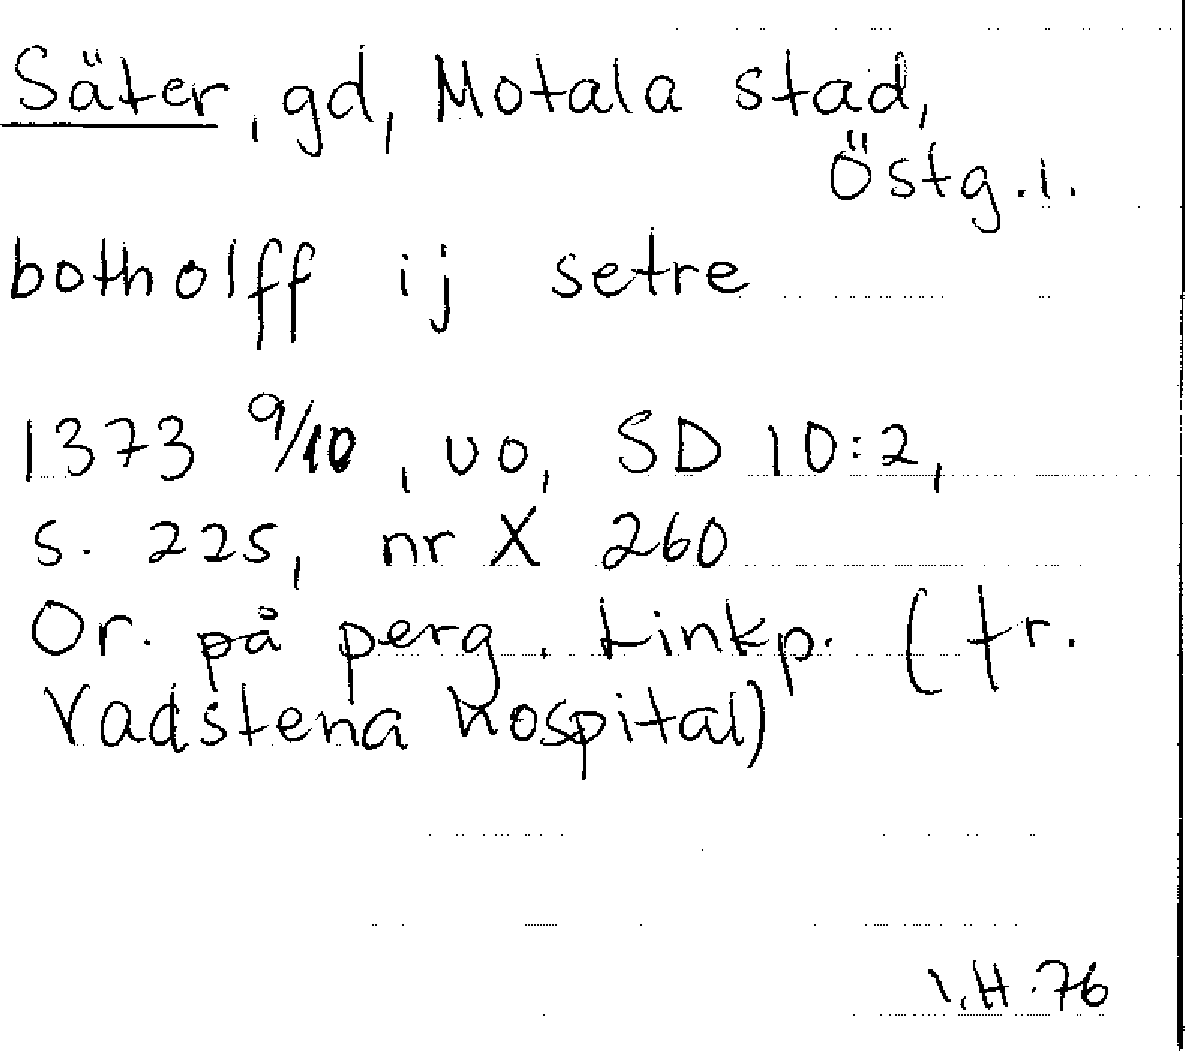 Säter, gd, Motala stad,
Östg. l.
botholff ij setre
1373 9/10, uo, SD 10:2,
s. 225, nr X 260
Or. på perg. Linkp. (fr.
Vadstena hospital)
I.H. 76